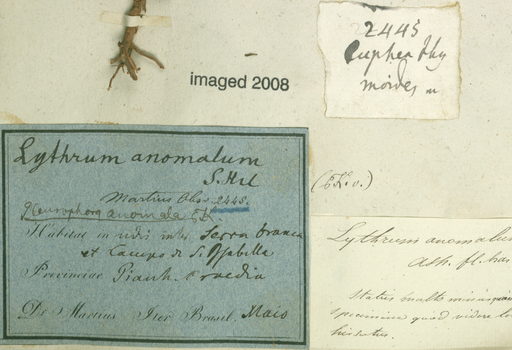 2445
Cuphea thy
moides
imaged 2008
Lythrum anomalum
S. Hil
Martius Obs. 2445.
Pleurophora anomala E.K.
Habitat in intr. Serra branca
et Campo de S. Isabella
Provinciae Piauh.
Dr. Martius Iter Brasil. Maio
(E.K. v.)
Lythrum anomalum
Ash. fl. bras
Statio multo
specimine quod videre